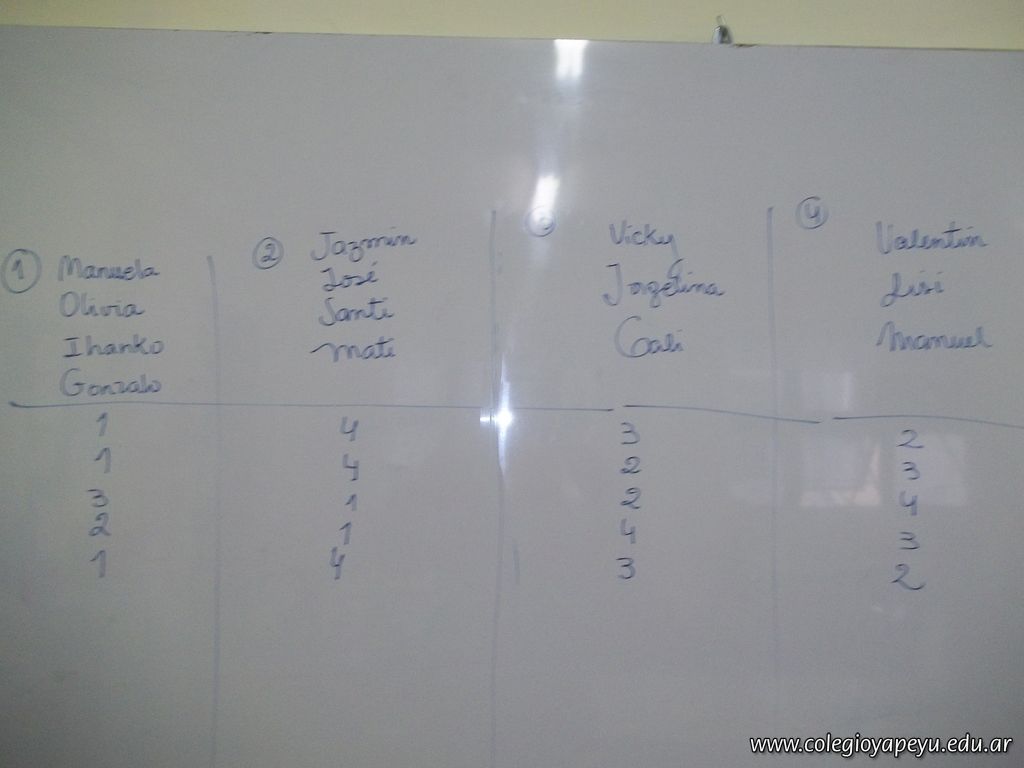 1 Manuela
Olivia
Ihanko
Gonzalo
1
1
3
2
1
2 Jazmin
José
Santi
Mati
4
4
1
1
4
Vicky
Jorgelina
Gali
3
2
2
4
3
4 Valentin
Lisi
Manuel
2
3
4
3
2
www.colegioyapeyu.edu.ar